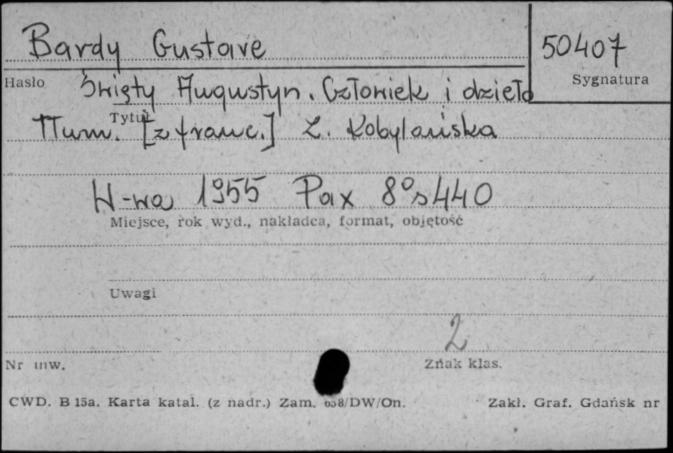 Bardy Gustave
50407
Hasło
Sygnatura
Święty Augustyn. Człowiek i dzieło
Tytuł
Tłum. [z franc.] Z. Kobylańska
W-wa 1955 Pax 8° s 440
Miejsce, rok wyd., nakładca, format, objętość
Uwagi
2
Nr inw.
Znak klas.
CWD. B 15a. Karta katal. (z nadr.) Zam. 658/DW/On. Zakł. Graf. Gdańsk nr